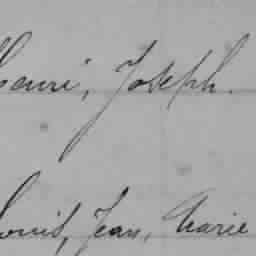 Henri, Joseph.
Louis, Jean, Marie